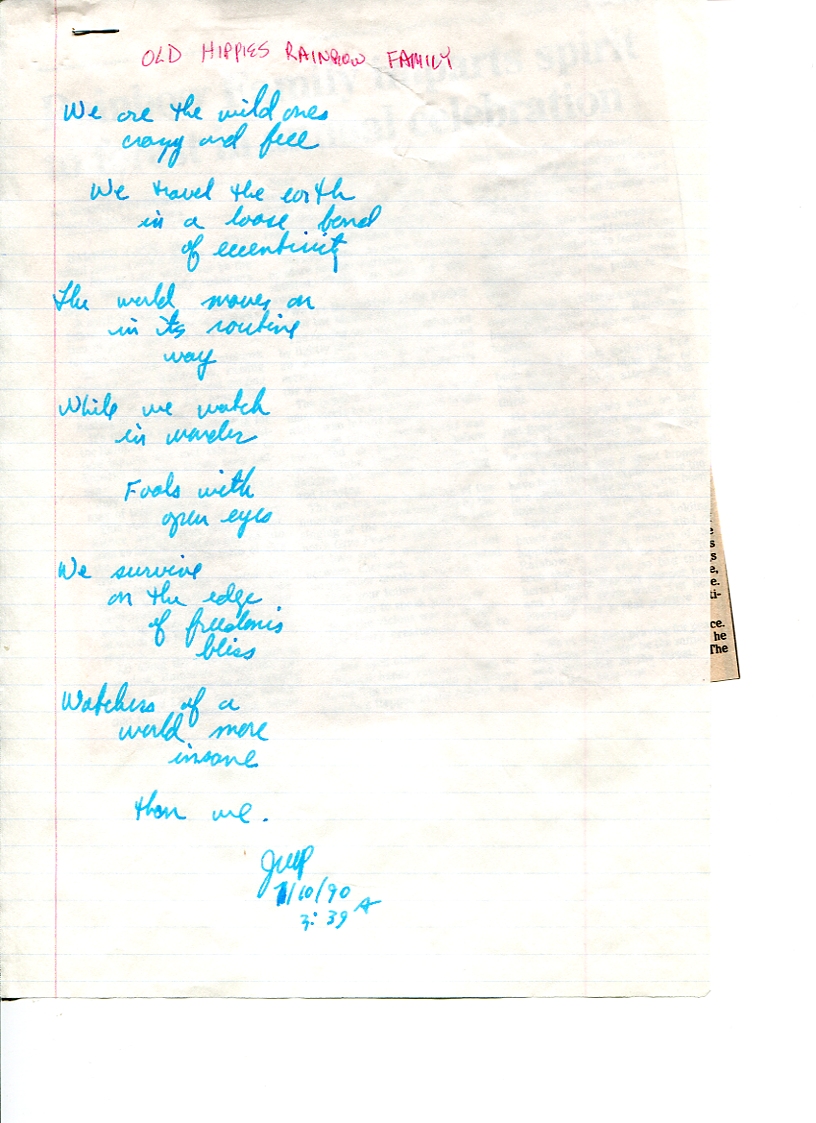 OLD HIPPIES RAINBOW FAMILY
We are the wild ones
crazy and free
We travel the earth
in a loose band
of eccentricity
The world moves on
in its routine
way
While we watch
in wonder
Fools with
open eyes
We survive
on the edge
of freedom's
bliss
Watchers of a
world more
insane
than we.
7/10/90
3:39 A
s
s
e,
e.
ti-
ce.
he
The